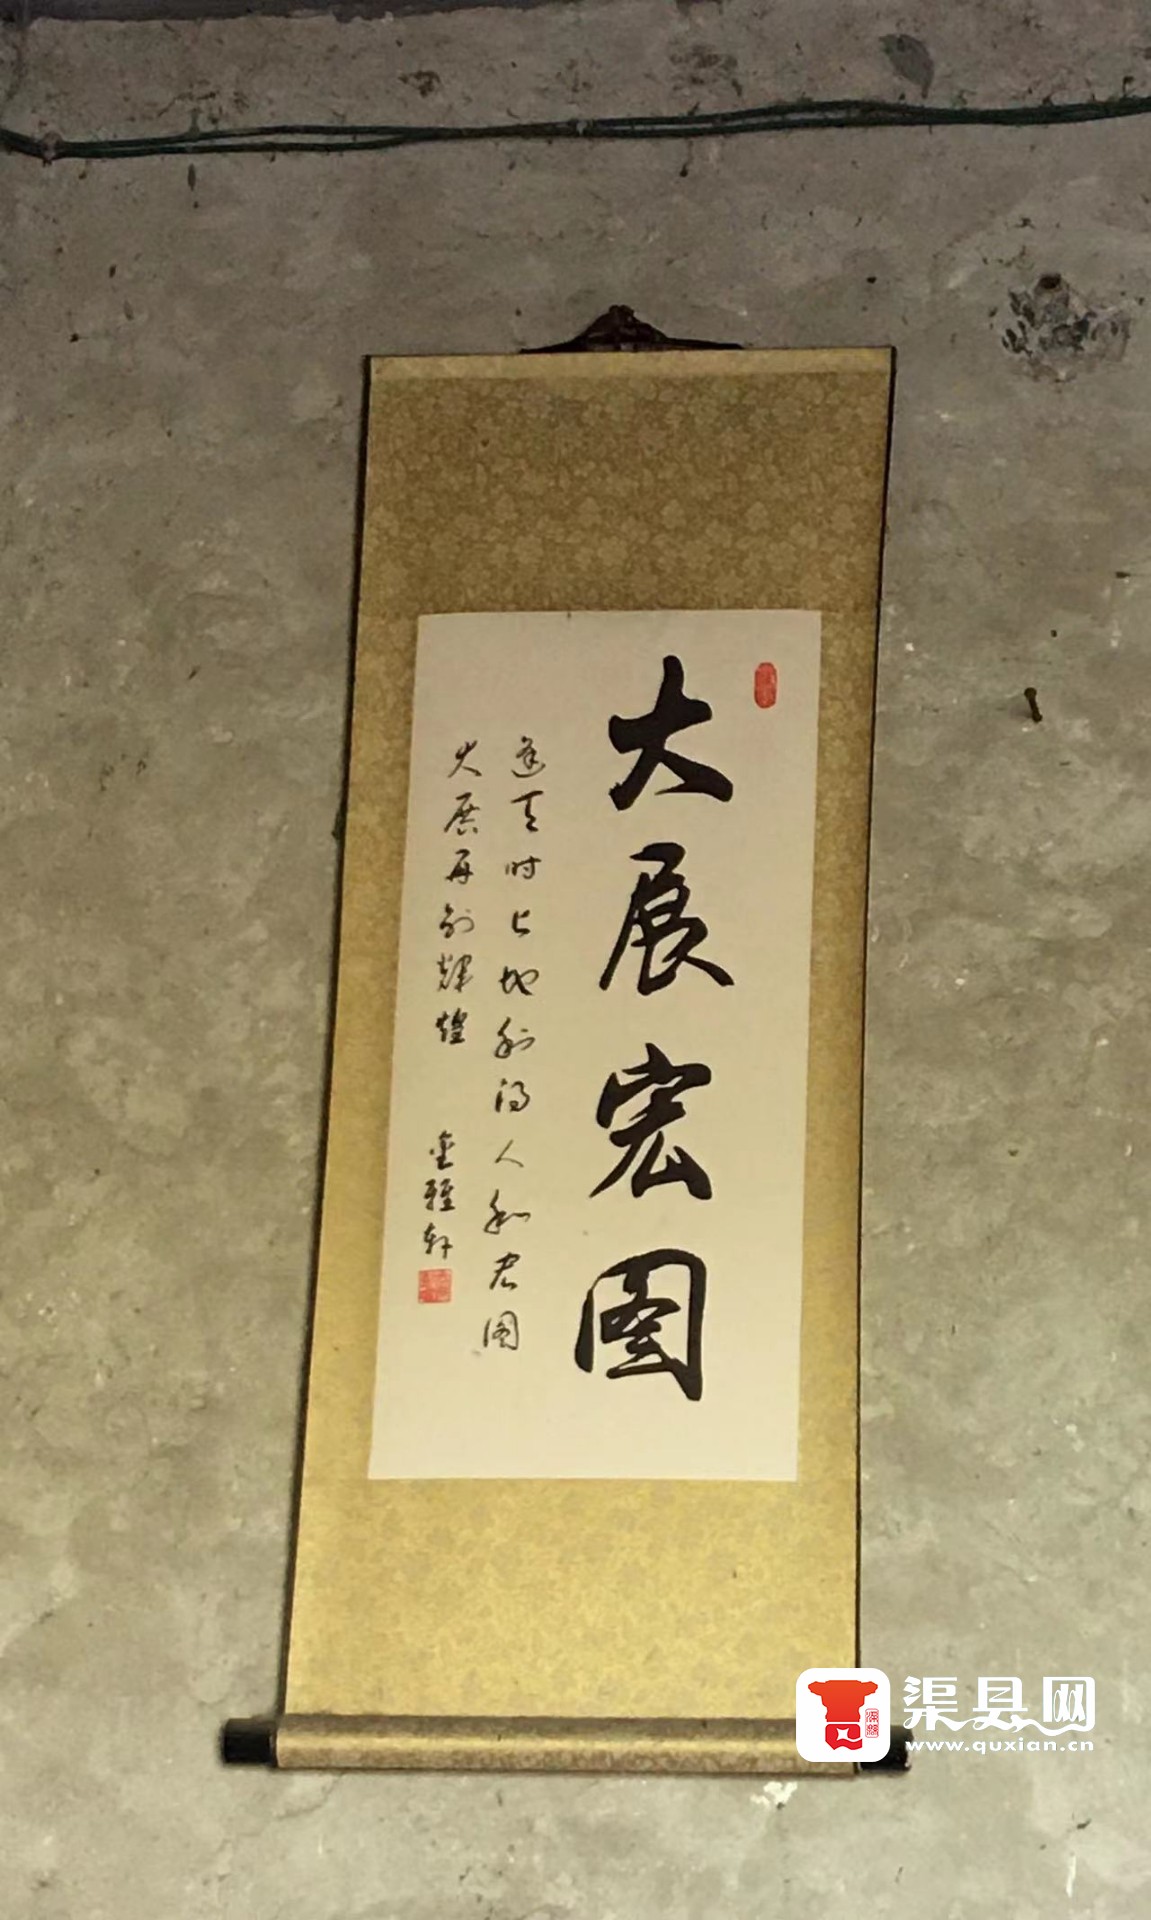 大展宏图
逢天时占地利得人和宏图
大展再创辉煌
金雅轩
渠县网
www.quxian.cn